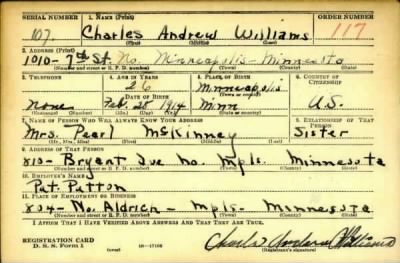 SERIAL NUMBER 1. NAME (Print) ORDER NUMBER
107 Charles Andrew Williams 117
(First) (Middle) (Last)
2. ADDRESS (Print)
1010-7th St. No. Minneapolis-Minnesota
(Number and street or R. F. D. number) (Town) (County) (State)
3. TELEPHONE 4. AGE IN YEARS 5. PLACE OF BIRTH 6. COUNTRY OF CITIZENSHIP
26 Minneapolis
DATE OF BIRTH (Town or county)
None Feb. 28 1914 Minn U.S.
(Mo.) (Day) (Yr.) (State or country)
7. NAME OF PERSON WHO WILL ALWAYS KNOW YOUR ADDRESS 8. RELATIONSHIP OF THAT PERSON
Mrs. Pearl McKinney Sister
(Mr., Mrs., Miss) (First) (Middle) (Last)
9. ADDRESS OF THAT PERSON
813-Bryant Ave No. Mpls. Minnesota
(Number and street or R. F. D. number) (Town) (County) (State)
10. EMPLOYER'S NAME
Pat. Patton
11. PLACE OF EMPLOYMENT OR BUSINESS
804-No. Aldrich-Mpls-Minnesota
(Number and street or R. F. D. number) (Town) (County) (State)
I AFFIRM THAT I HAVE VERIFIED ABOVE ANSWERS AND THAT THEY ARE TRUE.
REGISTRATION CARD Charles Andrew Williams
D. S. S. FORM 1 (over) 16-17105 (Registrant's signature)